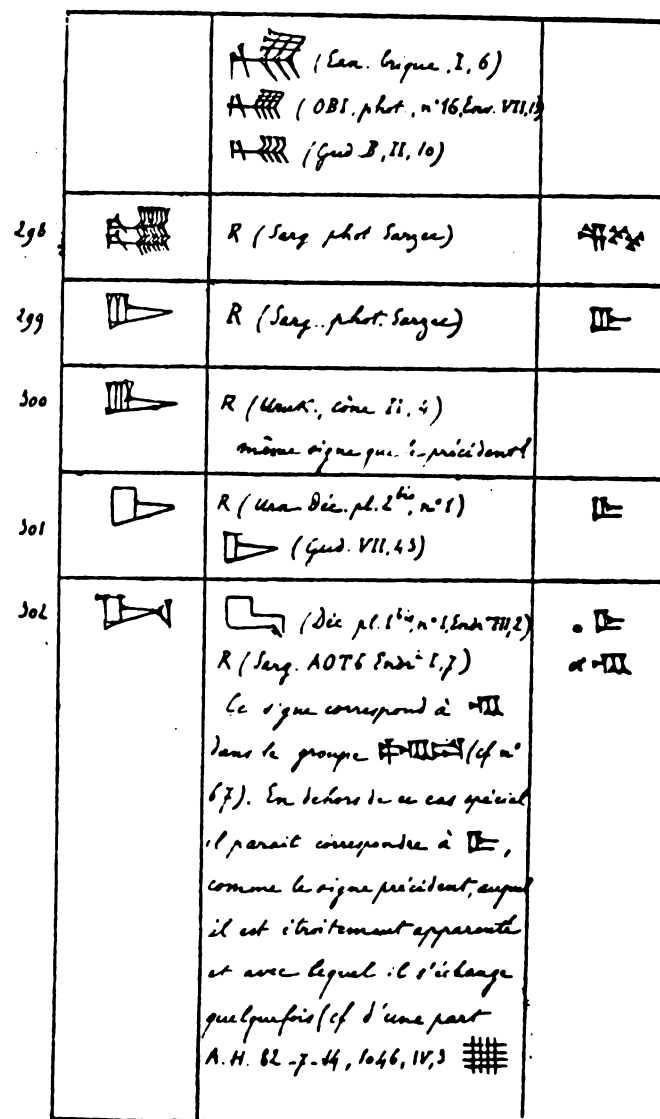 (Ean. brique, I, 6)
(OBI. phot., n°16, Ens. VII,
(Gud B, II, 10)
298 R (Sarg phot Sarzec)
299 R (Sarg. phot. Sarzec)
300 R (Uruk., cône II, 4)
même signe que précédent
301 R (Urn Déc. pl. 2 bis, n° 1)
(Gud. VII, 43)
302 (Déc pl. 1 bis, n° 1, 2)
R (Sarg. AOT6 I, 7)
Ce signe correspond à
dans le groupe (cf n°
67). En dehors de ce cas spécial
il parait correspondre à ,
comme le signe précédent, auquel
il est étroitement apparenté
et avec lequel il s'échange
quelquefois (cf d'une part
A.H. 82-7-14, 1046, IV, 3